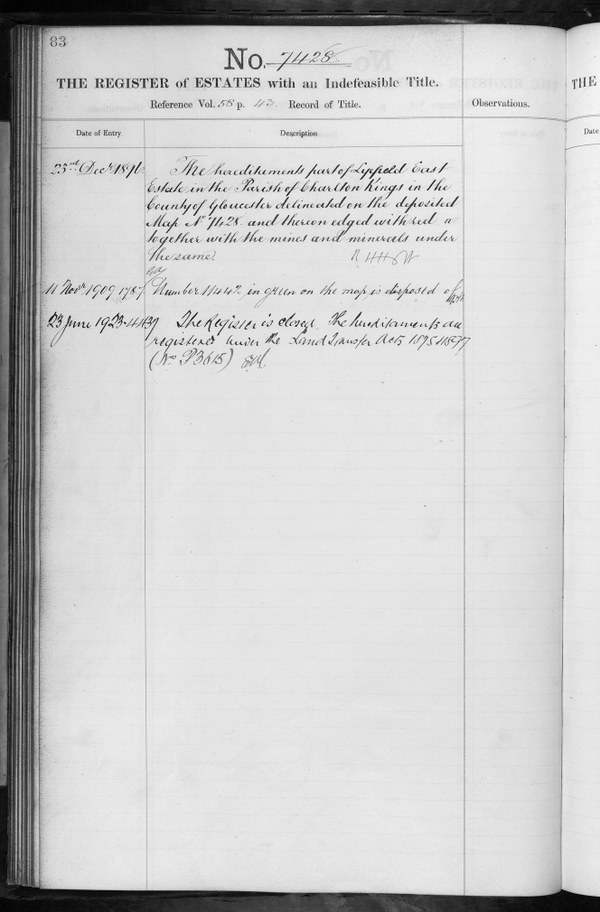 83
No. 7428
THE REGISTER of ESTATES with an Indefeasible Title.
Reference Vol. 58 p. 42 Record of Title.
Observations.
Date of Entry
Description
23rd Decr 1896
The hereditaments part of East
Estate in the Parish of Charlton Kings in the
County of Gloucester delineated on the deposited
Map No 7428 and thereon edged with red
together with the mines and minerals under
the same
11 Novr 1909
Number in green on the map is disposed of
23 June 1923
The Register is closed. The hereditaments are
registered under the Land Transfer Acts 1875 & 1897
(No P3615)
THE
Date